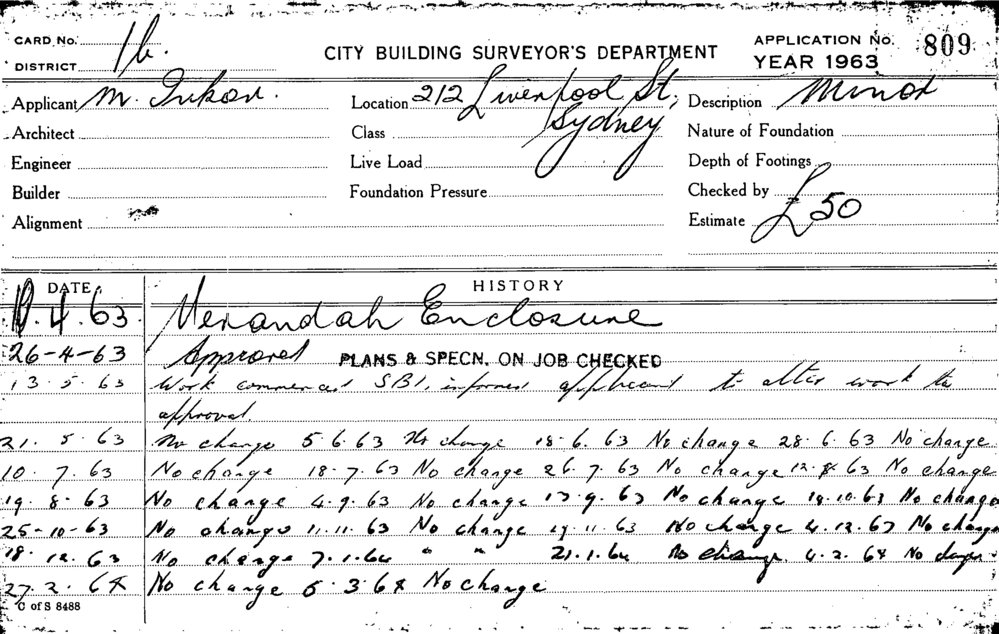 CARD No. 16.
DISTRICT
CITY BUILDING SURVEYOR'S DEPARTMENT
APPLICATION No. 809
YEAR 1963
Applicant M.
Location 212 Liverpool St, Sydney
Description Minor
Architect
Class
Nature of Foundation
Engineer
Live Load
Depth of Footings
Builder
Foundation Pressure
Checked by
Alignment
Estimate £50
DATE HISTORY
10.4.63 Verandah Enclosure
26-4-63 Approved PLANS & SPECN. ON JOB CHECKED
13.5.63 Work commenced SBI, informed applicant to alter work to
approval.
21.5.63 No change 5.6.63 No change 18.6.63 No change 28.6.63 No change.
10.7.63 No change 18.7.63 No change 26.7.63 No change 12.8.63 No change
19.8.63 No change 4.9.63 No change 17.9.63 No change 14.10.63 No change
25-10-63 No change 11.11.63 No change 19.11.63 No change 4.12.63 No change
18.12.63 No change 7.1.64 " " 21.1.64 No change. 4.2.64 No change.
27.2.64 No change 5.3.64 No change
C of S 8488